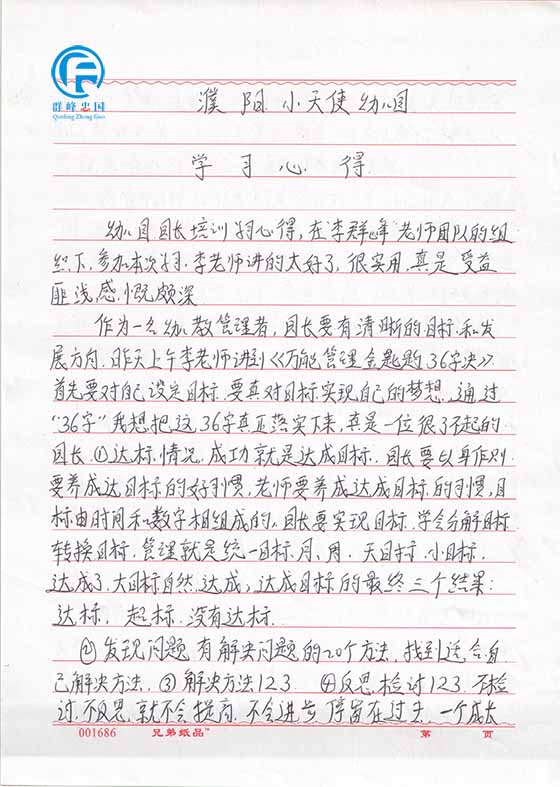 群峰忠国
Qunfeng Zhong Guo
濮阳小天使幼儿园
学习心得
幼儿园园长培训学习心得,在"李群峰"老师团队的组
织下,参加本次学习.李老师讲的太好了,很实用,真是受益
匪浅,感慨颇深
作为一名幼教管理者,园长要有清晰的目标和发
展方向.昨天上午李老师讲到《万能管理金匙匙36字决》.
首先要对自己设定目标.要真对目标实现自己的梦想.通过
"36字"我想把这36字真正落实下来,真是一位很了不起的
园长.①达标情况.成功就是达成目标.园长要以身作则
要养成达目标的好习惯,老师要养成达成目标的习惯,目
标由时间和数字相组成的,园长要实现目标.学会分解目标
转换目标.管理就是统一目标,月、周、天目标.小目标.
达成了.大目标自然达成,达成目标的最终三个结果:
达标,超标.没有达标.
②发现问题 有解决问题的20个方法.找到适合自
己解决方法.③解决方法123 ④反思检讨123.不检
讨.不反思.就不会提高.不会进步.停留在过去.一个成长
001686 兄弟纸品™ 第 页